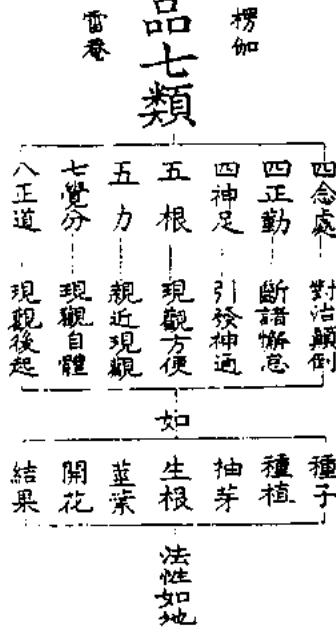 楞伽
品七類
雷菴
四念處 對治顛倒
四正勤 斷諸懈怠
四神足 引發神通
五根 現觀方便
五力 親近現觀
七覺分 現觀自體
八正道 現觀後起
如
種子
種植
抽芽
生根
莖葉
開花
結果
法性如地